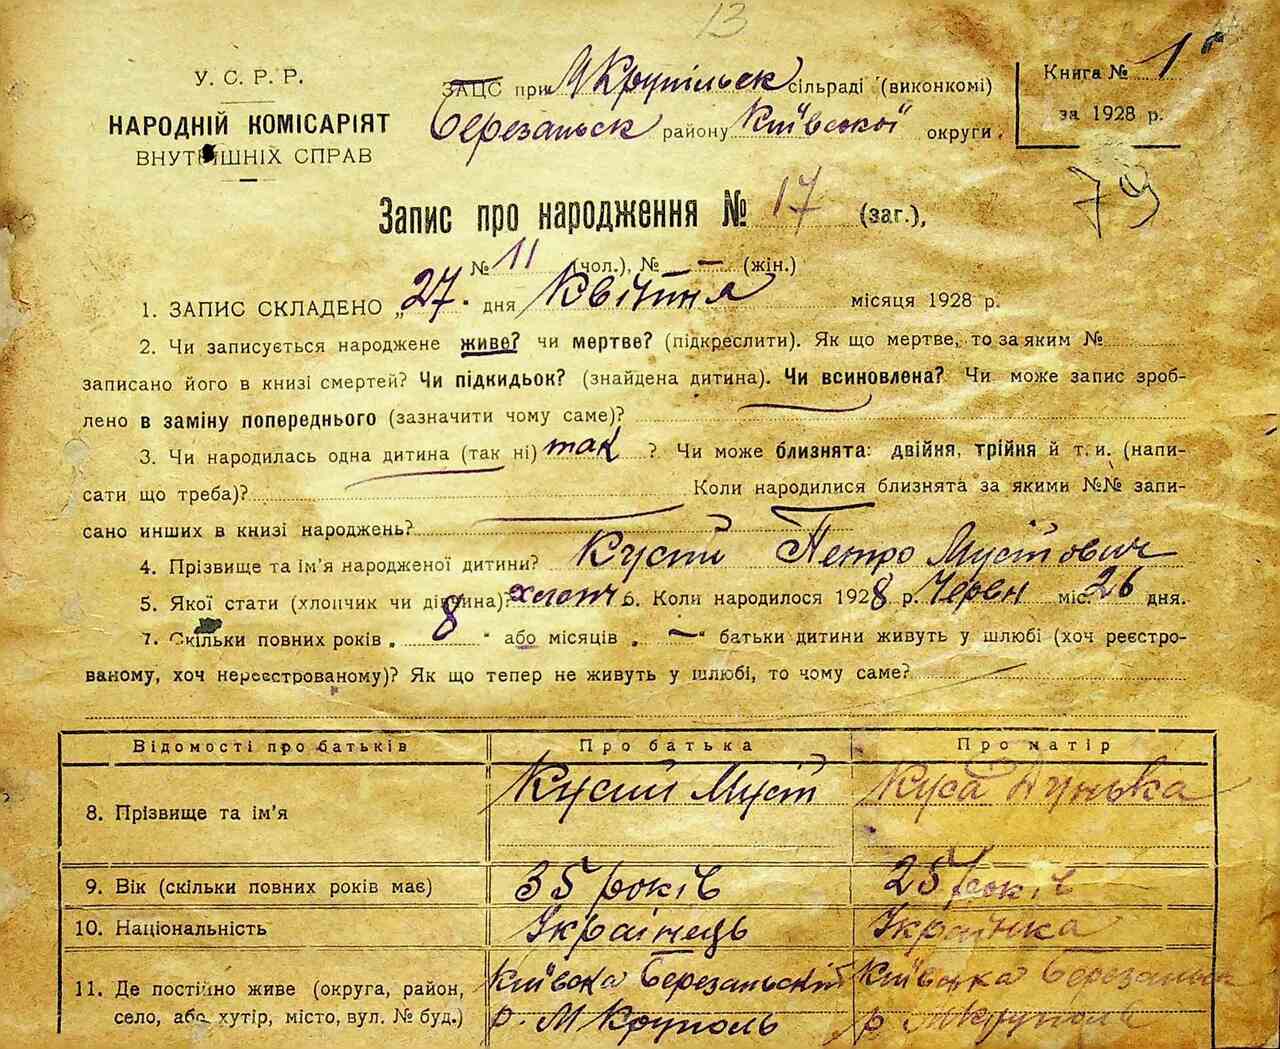 13
У. С. Р. Р.
НАРОДНІЙ КОМІСАРІЯТ
ВНУТРІШНІХ СПРАВ
ЗАЦС при М Крупільск сільраді (виконкомі)
Березанськ району Київської округи.
Книга № 1
за 1928 р.
79
Запис про народження № 17 (заг.),
№ 11 (чол.), № — (жін.)
1. ЗАПИС СКЛАДЕНО „27. дня Квітня місяця 1928 р.
2. Чи записується народжене живе? чи мертве? (підкреслити). Як що мертве, то за яким №
записано його в книзі смертей? Чи підкидьок? (знайдена дитина). Чи всиновлена? Чи може запис зроб-
лено в заміну попереднього (зазначити чому саме)?
3. Чи народилась одна дитина (так ні) так ? Чи може близнята: двійня, трійня й т. и. (напи-
сати що треба)? Коли народилися близнята за якими №№ запи-
сано инших в книзі народжень?
4. Прізвище та ім'я народженої дитини? Кусій Петро Мусійович
5. Якої стати (хлопчик чи дівчина)? хлопч 6. Коли народилося 1928 р. Червн міс. 26 дня.
7. Скільки повних років „ 8 " або місяців „ — " батьки дитини живуть у шлюбі (хоч реєстро-
ваному, хоч нереєстрованому)? Як що тепер не живуть у шлюбі, то чому саме?
Відомості про батьків Про батька Про матір
8. Прізвище та ім'я Кусий Мусій Куса Дунька
9. Вік (скільки повних років має) 35 років 25 років
10. Національність Українець Українка
11. Де постійно живе (округа, район, Київска Березанський Київська Березанськ
село, або хутір, місто, вул. № буд.) р. М Круполь р М Круполь